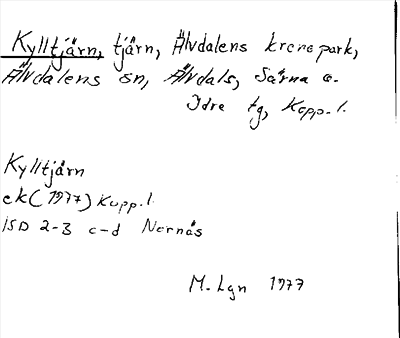 Kylltjärn, tjärn, Älvdalens kronopark,
Älvdalens sn, Älvdals, Särna o.
Idre tg, Kopp. l.
Kylltjärn
ek (1977) Kopp. l.
ISD 2-3 c-d Nornäs
M. Lgn 1977